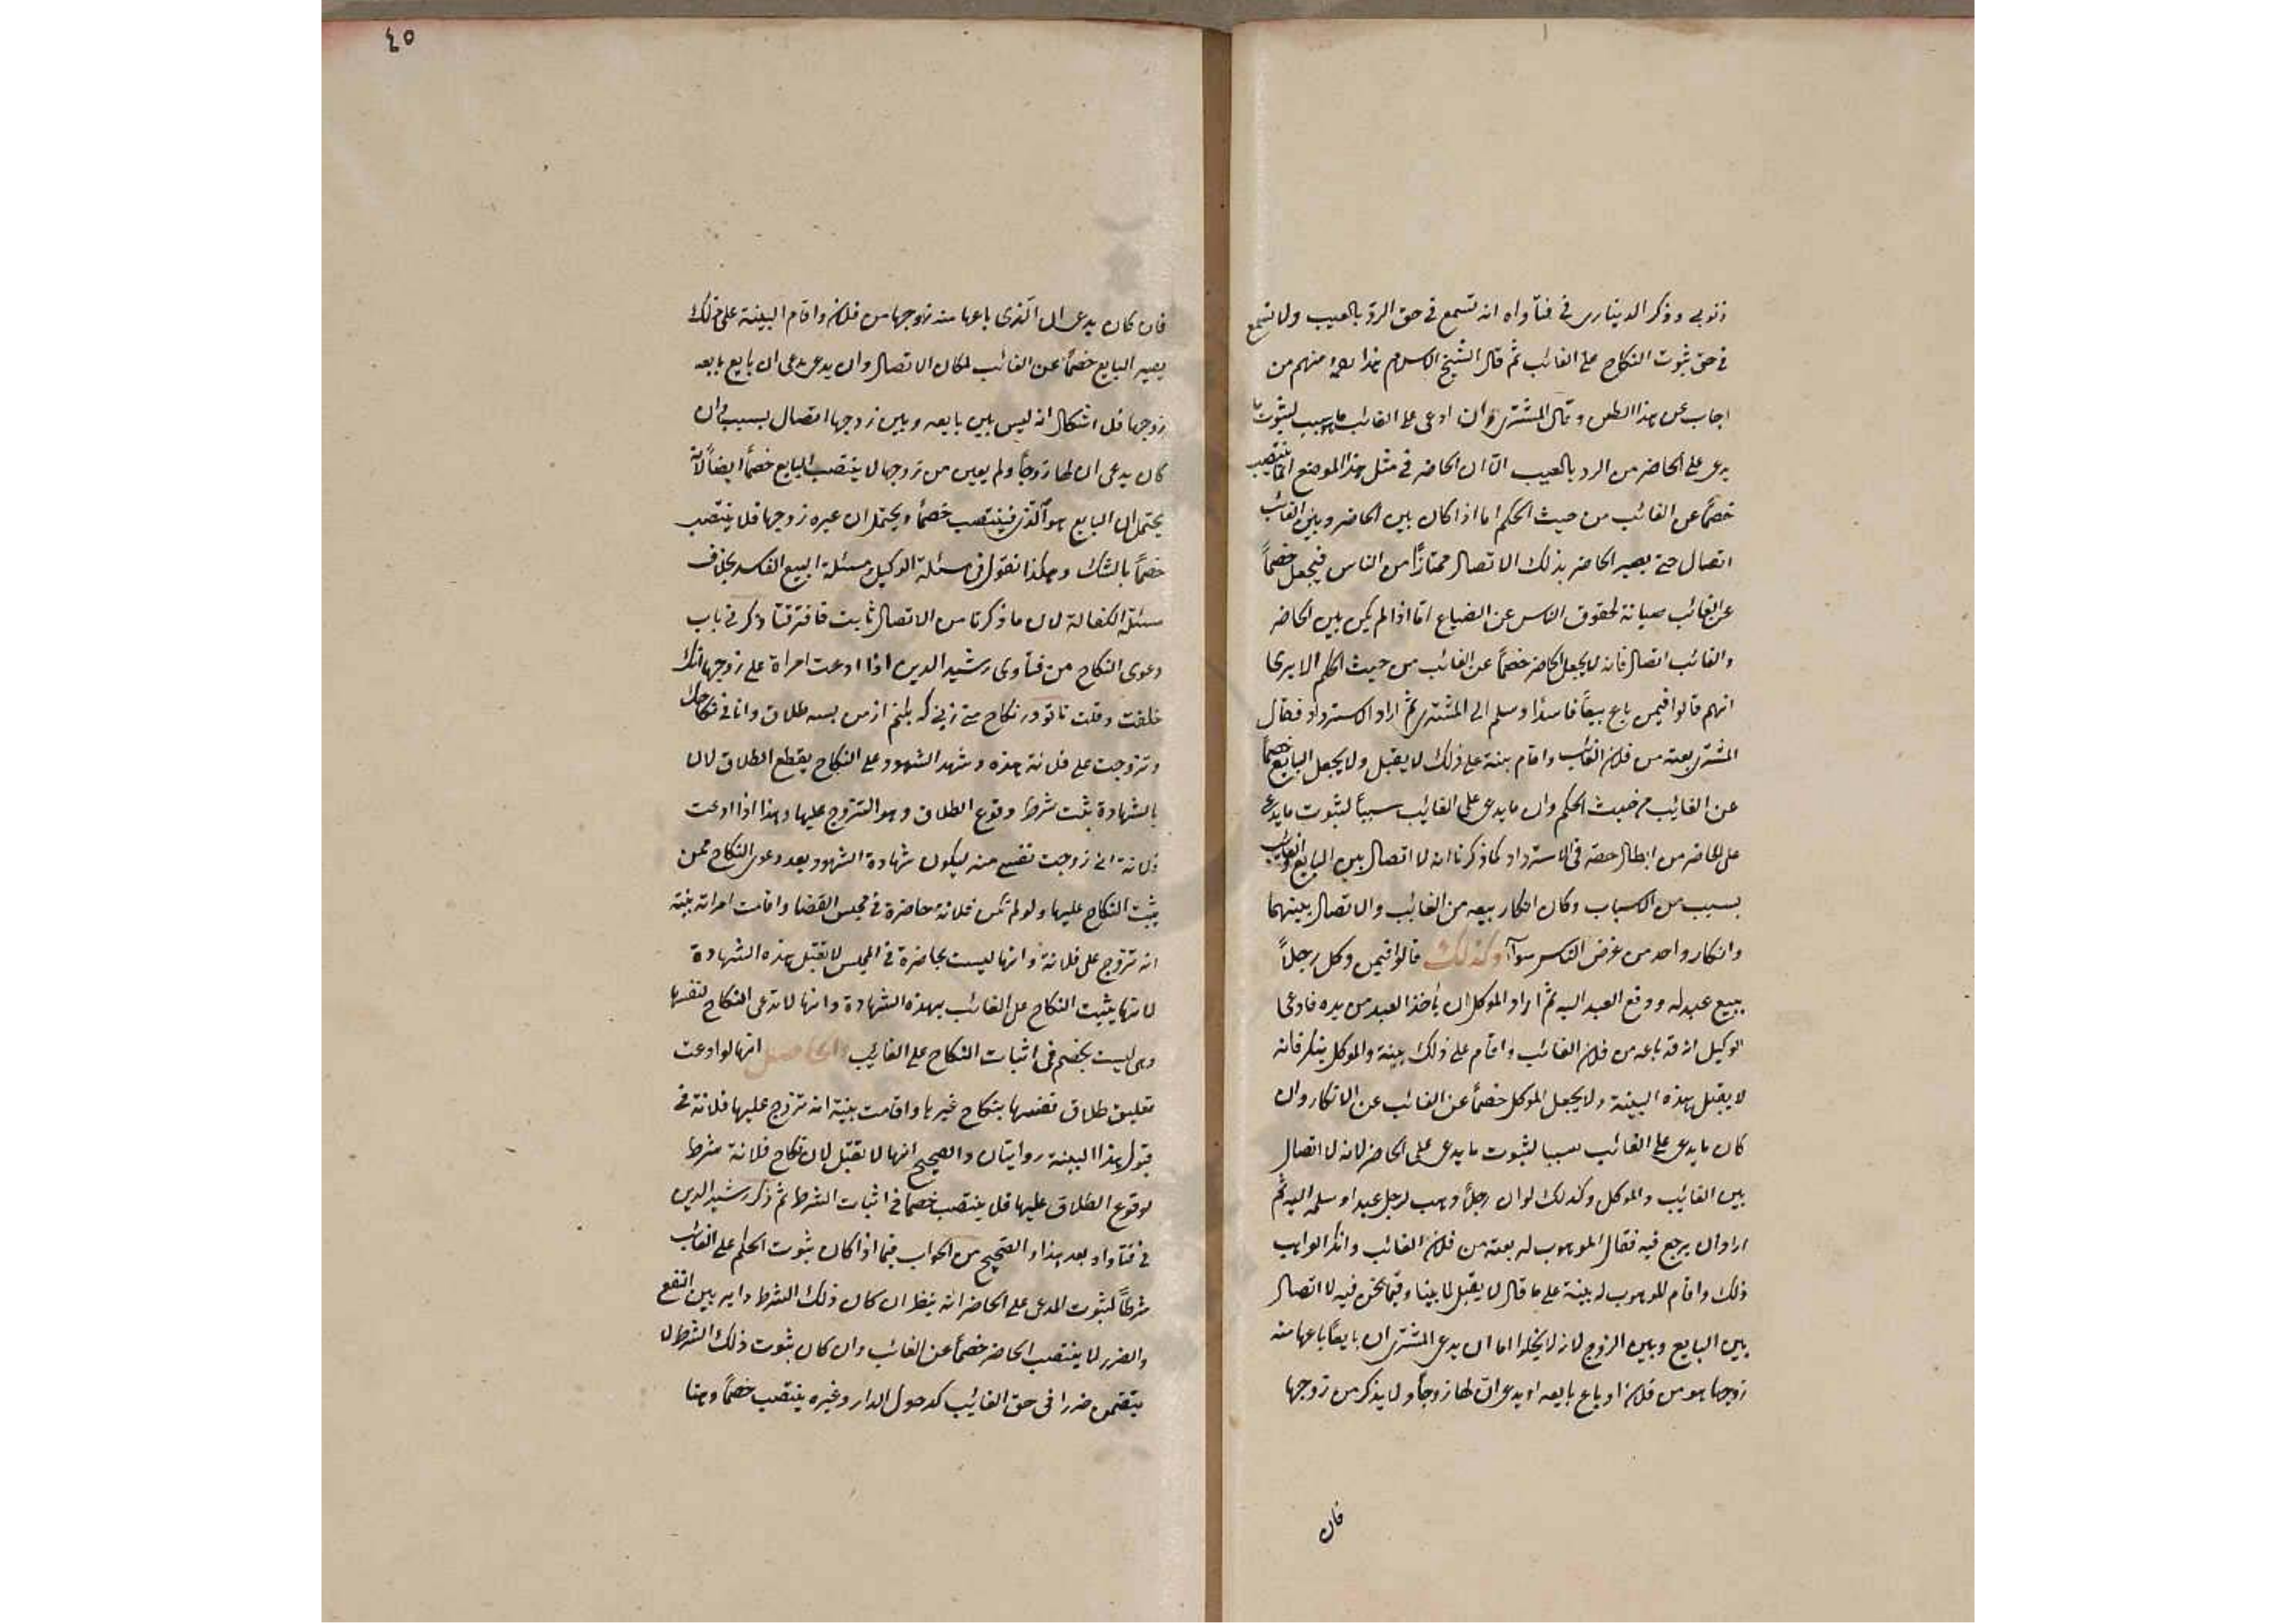 ذنوبي وذكر الديناري في فتاواه انه تسمع في حق الرد بالعيب ولا تسمع
في حق ثبوت النكاح على الغائب ثم قال الشيخ الاسلام هذا منهم من
اجاب عن هذا الطعن وقال المشتري وان ادعى على الغائب ما هو سبب لثبوت ما
يدعى على الحاضر من الرد بالعيب الا ان الحاضر في مثل هذا الموضع انما ينتصب
خصماً عن الغائب من حيث الحكم اما اذا كان بين الحاضر وبين الغائب
اتصال حتى يصير الحاضر بذلك الاتصال ممتازاً من الناس فيجعل خصماً
عن الغائب صيانة لحقوق الناس عن الضياع اما اذا لم يكن بين الحاضر
والغائب اتصال فانه لا يجعل الحاضر خصماً عن الغائب من حيث الحكم الا يرى
انهم قالوا فيمن باع بيعاً فاسدا وسلم الى المشتري ثم اراد الاسترداد فقال
المشتري بعته من فلان الغائب واقام بينة على ذلك لا يقبل ولا يجعل البايع خصماً
عن الغائب من حيث الحكم وان ما يدعى على الغايب سبباً لثبوت ما يدعى
على الحاضر من ابطال حقه في الاسترداد كما ذكرنا انه لا اتصال بين البايع والغائب
بسبب من الاسباب وكان انكار بيعه من الغائب والاتصال بينهما
وانكار واحد من عرض الناس سواآ وكذلك قالوا فيمن وكل رجلاً
ببيع عبد له ودفع العبد اليه ثم اراد الموكل ان يأخذ العبد من يده فادعى
الوكيل انه قد باعه من فلان الغائب واقام على ذلك بينة والموكل ينكر فانه
لا يقبل بهذه البينة ولا يجعل الموكل خصماً عن الغائب عن الانكار وان
كان ما يدعى على الغائب سببا لثبوت ما يدعى على الحاضر لانه لا اتصال
بين الغائب والموكل وكذلك لو ان رجلاً وهب لرجل عبدا وسلمه اليه ثم
اراد ان يرجع فيه فقال الموهوب له بعته من فلان الغائب وانكر الواهب
ذلك واقام الموهوب له بينة على ما قال لا يقبل لما بينا وفيما نحن فيه لا اتصال
بين البايع وبين الزوج لانه لا يخلوا اما ان يدعى المشتري ان بايعاً باعها منه
زوجها هو من فلان او باع بايعه او يدعى ان لها زوجاً ولا يذكر من زوجها
فان
٤٥
فان كان يدعى ان الذي باعها منه زوجها من فلان واقام البينة على ذلك
يصير البايع خصماً عن الغائب لمكان الاتصال وان يدعى ان بايع بايعه
زوجها فلا اشكال انه ليس بين بايعه وبين زوجها اتصال بسبب وان
كان يدعى ان لها زوجاً ولم يعين من زوجها لا ينتصب البايع خصماً ايضاً لانه
يحتمل ان البايع هو الذي فينتصب خصماً ويحتمل ان غيره زوجها فلا ينتصب
خصماً بالشك وهكذا نقول في مسئلة الوكيل ومسئلة البيع الفاسد بخلاف
مسئلة الكفالة لان ما ذكرنا من الاتصال ثابت فافترقتا وذكر في باب
دعوى النكاح من فتاوى رشيد الدين اذا ادعت امراة على زوجها انك
حلفت وقلت تا تو در نكاح منى زنى كه بكنم از من بسه طلاق وانا في نكاحك
وتزوجت على فلانة هذه وشهد الشهود على النكاح يقطع الطلاق لان
بالشهادة يثبت شرط وقوع الطلاق وهو التزوج عليها وهذا اذا ادعت
فلانة اني زوجت نفسي منه ليكون شهادة الشهود بعد دعوى النكاح ممن
يثبت النكاح عليها ولو لم تكن فلانة حاضرة في مجلس القضا واقامت امراته بينة
انه تزوج على فلانة وانها ليست بحاضرة في المجلس لا تقبل هذه الشهادة
لانها يثبت النكاح على الغائب بهذه الشهادة وانها لا تدعى النكاح لنفسها
وهى ليست بخصم في اثبات النكاح على الغايب والحاصل انها لو ادعت
تعليق طلاق نفسها بنكاح غيرها واقامت بينة انه تزوج عليها فلانة في
قبول هذا البينة روايتان والصحيح انها لا تقبل لان نكاح فلانة شرط
لوقوع الطلاق عليها فلا ينتصب خصما في اثبات الشرط ثم ذكر رشيد الدين
في فتاواه بعد هذا والصحيح من الجواب فيما اذا كان ثبوت الحكم على الغائب
شرطاً لثبوت المدعى على الحاضر انه ينظر ان كان ذلك الشرط داير بين النفع
والضرر لا ينتصب الحاضر خصماً عن الغائب وان كان ثبوت ذلك الشرط لا
يتضمن ضررا في حق الغايب كدخول الدار وغيره ينتصب خصماً وهنا